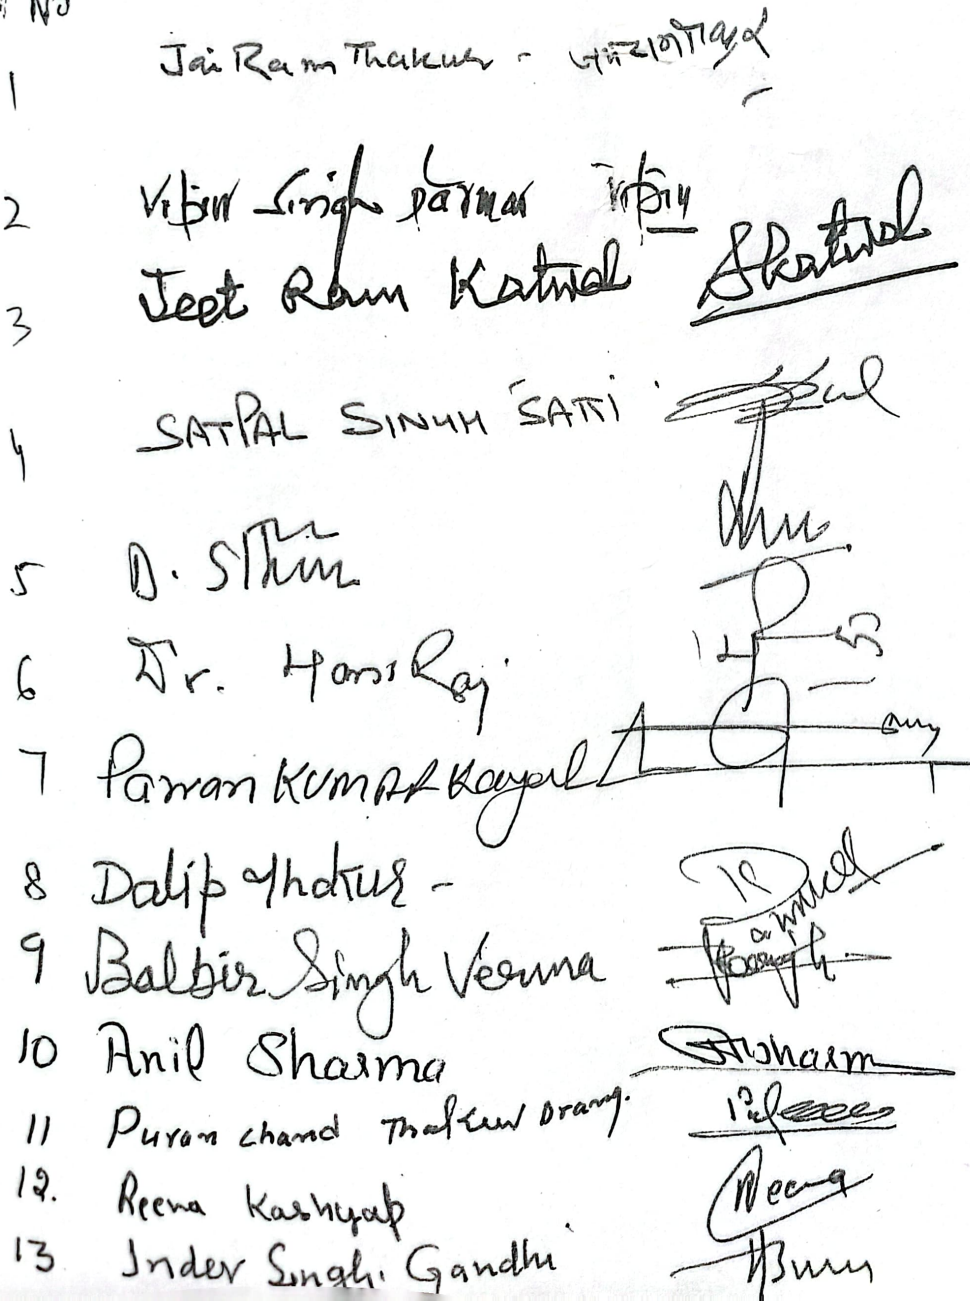 No
1 Jai Ram Thakur - जयरामठाकुर
2 Vipin Singh Parmar विपिन
3 Jeet Ram Katwal JRKatwal
4 SATPAL SINGH SATTI
5 D. S Thakur
6 Dr. Hans Raj
7 Pawan KUMAR Kajal
8 Dalip Thakur -
9 Balbir Singh Verma
10 Anil Sharma AKSharma
11 Puran chand Thakur Drang.
12. Reena Kashyap Reena
13 Inder Singh Gandhi